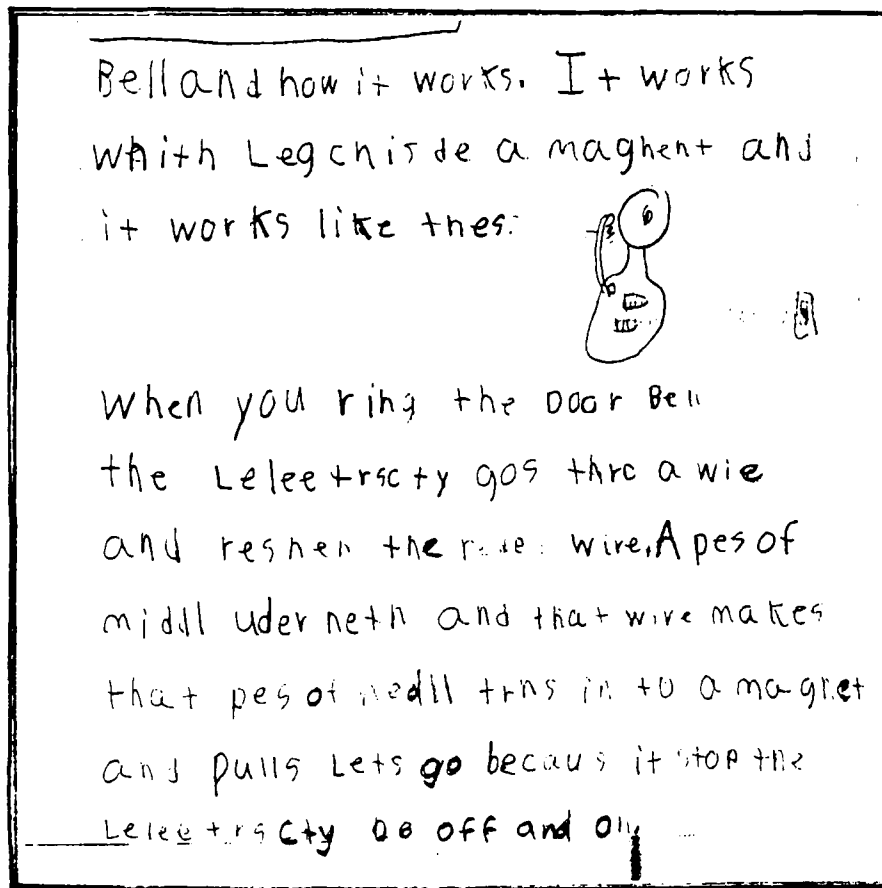 Bell and how it works. It works
whith Legcnisde a maghent and
it works like thes:
When you ring the Door Bell
the Leleetrscty gos thro a wie
and the wire. A pes of
middl uder neth and that wire makes
that pes of medll trns in to a magnet
and pulls Lets go becaus it stop the
Leleetrscty off and on